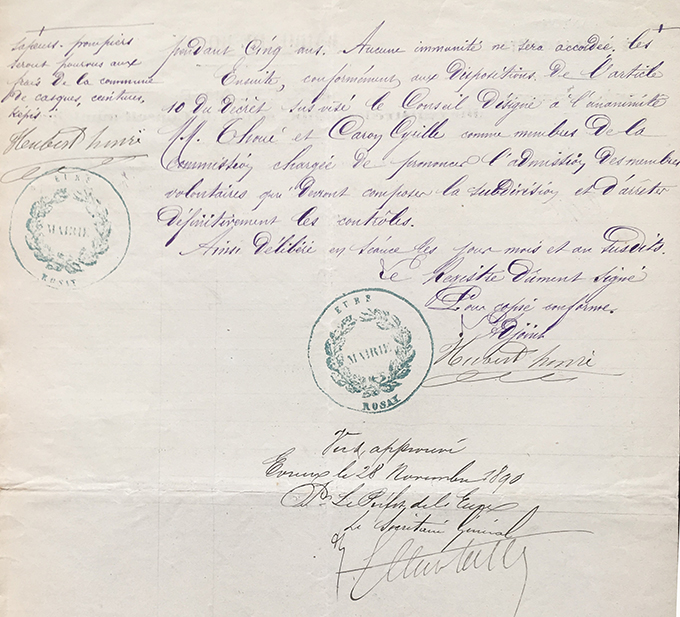 sapeurs-pompiers
seront pourvus aux
frais de la commune
de casques, ceintures,
képis.
Heubert henri
EURE
MAIRIE
ROSAY
pendant Cinq ans. Aucune immunité ne sera accordée. les
Ensuite, conformément aux Dispositions de l'article
10 du Décret susvisé le Conseil Désigne à l'unanimité
M.M. Choué et Caron Cyrille comme membres de la
Commission chargée de prononcer l'admission des membres
volontaires qui Devront composer la subdivision et d'arrêter
Définitivement les contrôles.
Ainsi Délibéré en séance les jour mois et an susdits.
Le Registre Dûment Signé
Pour copie conforme.
l'Adjoint
Heubert henri
EURE
MAIRIE
ROSAY
Vu et approuvé
Evreux le 28 Novembre 1890
Pr Le Préfet de l'Eure
Le Secrétaire Général